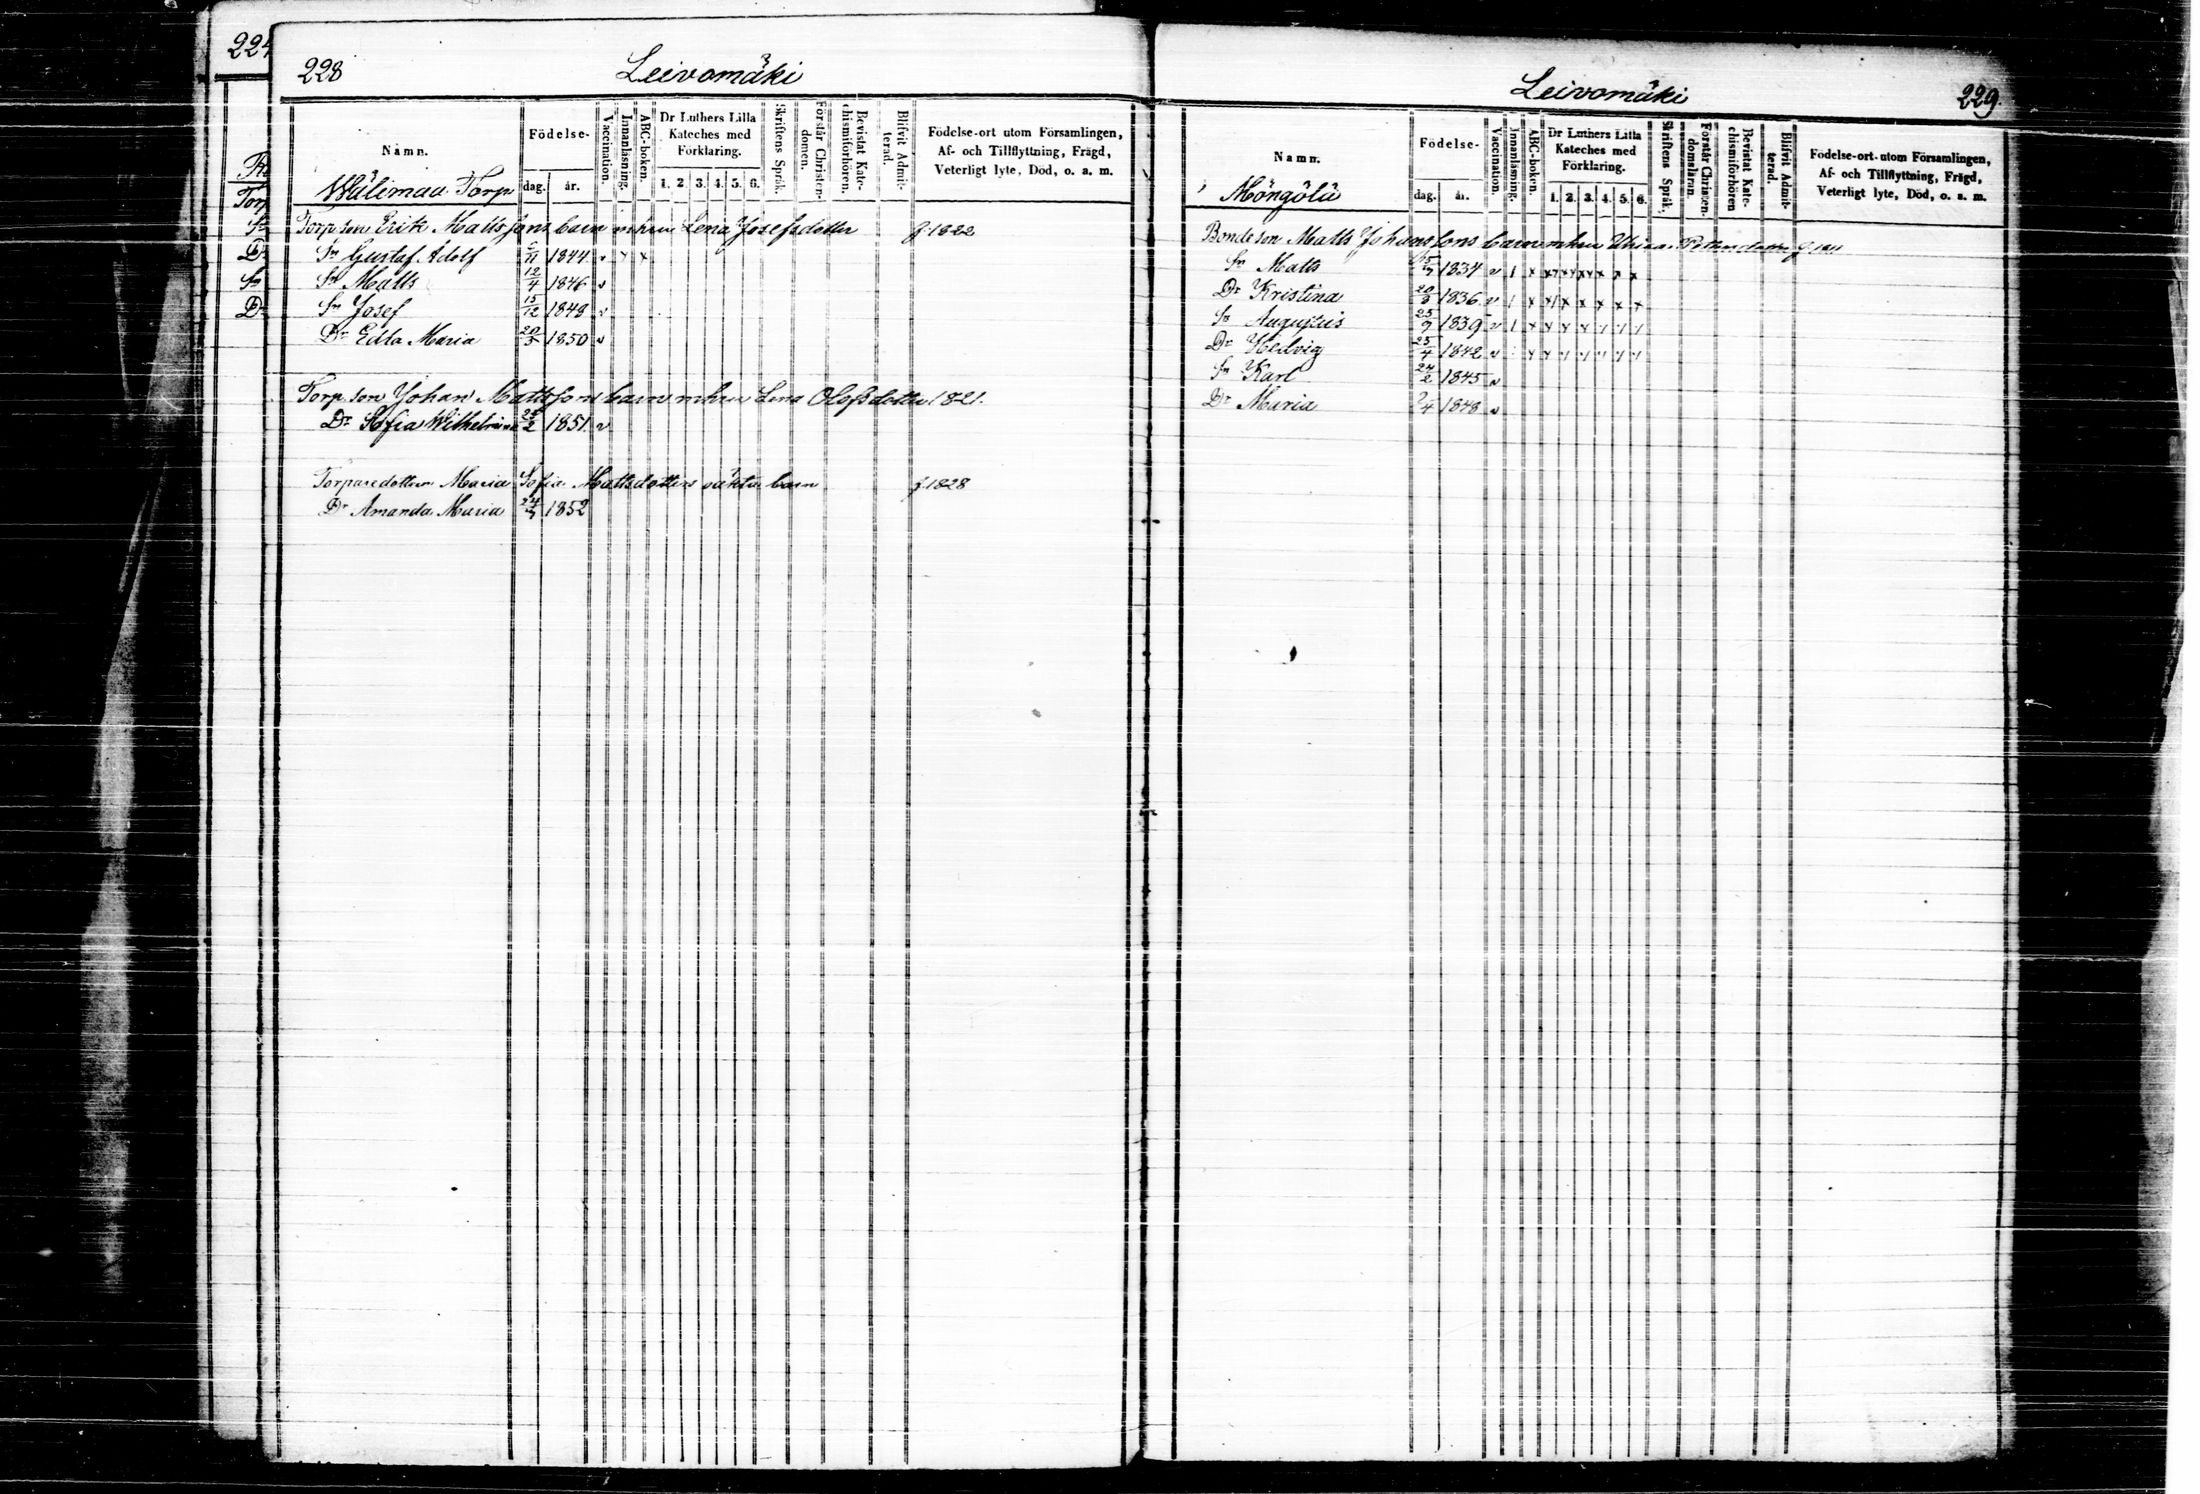 224
Torp
Sn
Dr
Sn
Dr
228
Leivomäki
Namn.
Födelse-
dag. år.
Vaccination.
Innanläsning.
ABC-boken.
Dr Luthers Lilla
Kateches med
Förklaring.
1. 2. 3. 4. 5. 6.
Skriftens Språk.
Förstår Christen-
domen.
Bevistat Kate-
chismiförhören.
Blifvit Admit-
terad.
Födelse-ort utom Församlingen,
Af- och Tillflyttning, Frägd,
Veterligt lyte, Död, o. a. m.
Wälimaa Torp
Torp son Erik Mattssons barn m hru Lena Josefsdotter f. 1822
Sn Gustaf Adolf /11 1844 v x x
Sn Matts 12/4 1846 v
Sn Josef 15/12 1848 v
Dr Edla Maria 20/3 1850 v
Torp son Johan Mattssons barn m hru Lena Olofsdotter 1821.
Dr Sofia Wilhelmina /2 1851. v
Torparedottern Maria Sofia Mattsdotters oäkta barn f. 1828
Dr Amanda Maria 24/7 1852
Leivomäki
229.
Namn.
Födelse-
dag. år.
Vaccination.
Innanläsning.
ABC-boken.
Dr Luthers Lilla
Kateches med
Förklaring.
1. 2. 3. 4. 5. 6.
Skriftens Språk.
Förstår Christen-
domsläran.
Bevistat Kate-
chismiförhören
Blifvit Admit-
terad.
Födelse-ort utom Församlingen,
Af- och Tillflyttning, Frägd,
Veterligt lyte, Död, o. a. m.
Möngölä
Bondeson Matts Johanssons barn m hru Ulrica Pettersdotter f. 1811
Sn Matts 1834 v
Dr Kristina 20/3 1836 v
Sn Augustus 25/9 1839 v
Dr Hedvig 25/4 1842 v
Sn Karl 24/2 1845 v
Dr Maria 2/4 1848 v